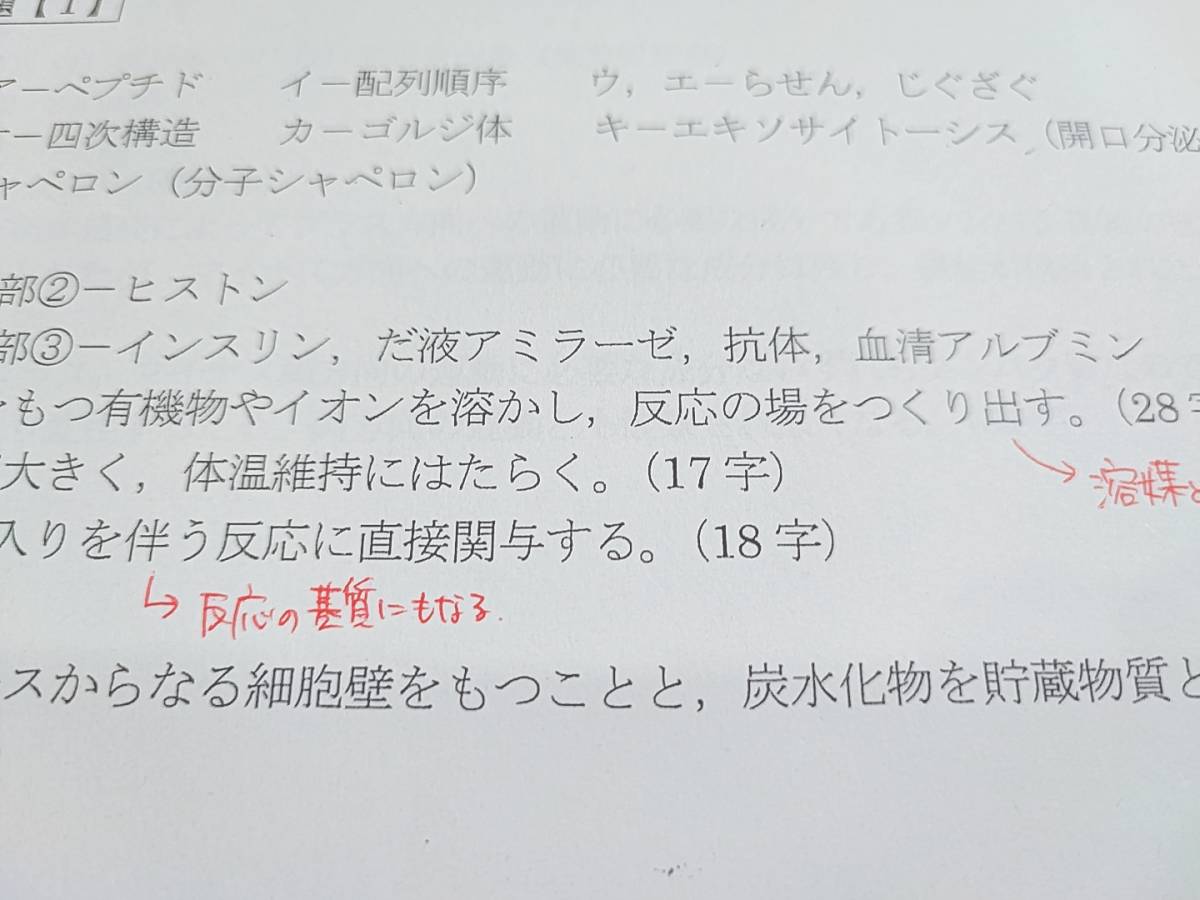 【1】
ア－ペプチド　イ－配列順序　ウ，エ－らせん，じぐざぐ
－四次構造　カ－ゴルジ体　キ－エキソサイトーシス（開口分泌
ャペロン（分子シャペロン）
部②－ヒストン
部③－インスリン，だ液アミラーゼ，抗体，血清アルブミン
もつ有機物やイオンを溶かし，反応の場をつくり出す。（28字
大きく，体温維持にはたらく。（17字）
溶媒と
入りを伴う反応に直接関与する。（18字）
反応の基質にもなる.
スからなる細胞壁をもつことと，炭水化物を貯蔵物質と